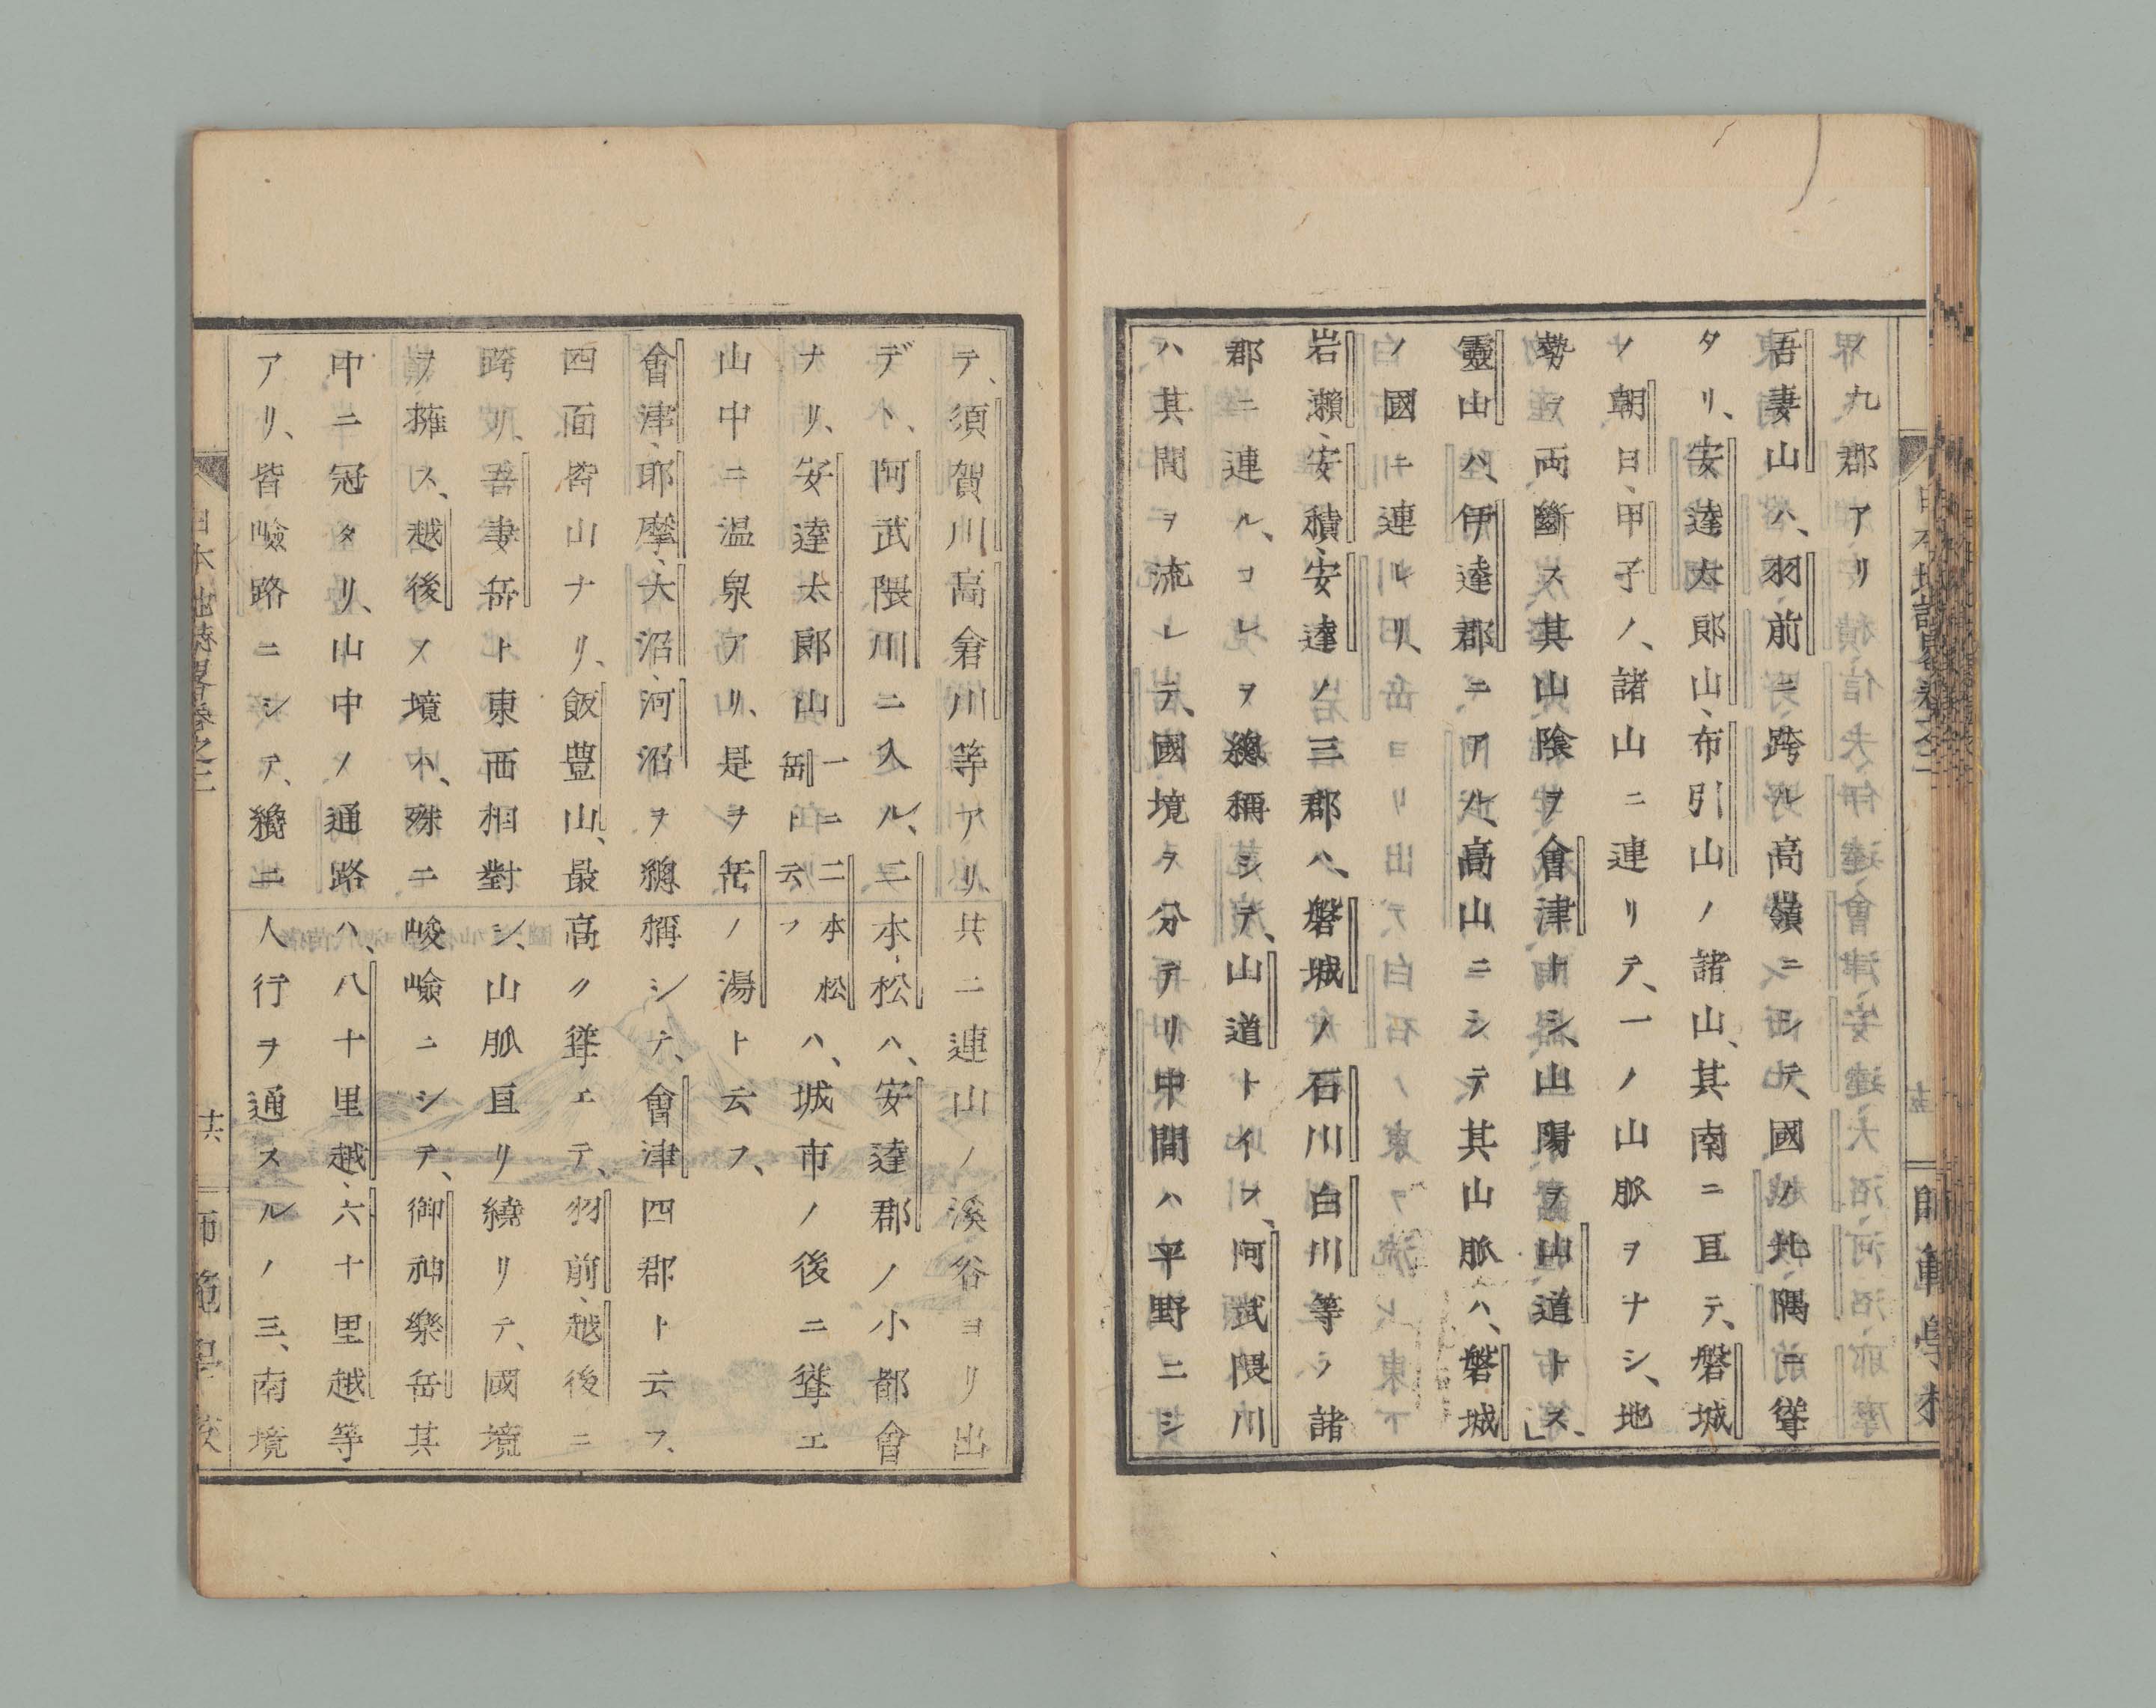 ノ九郡アリ
吾妻山ハ、羽前ニ跨ル高嶺ニシテ、國ノ北隅ニ聳
タリ、安達太郎山、布引山ノ諸山、其南ニ亘テ、磐城
ノ朝日、甲子ノ、諸山ニ連リテ、一ノ山脈ヲナシ、地
勢ヲ両斷ス其山陰ヲ會津トシ、山陽ヲ山道トス、」
靈山ハ、伊達郡ニアル、高山ニシテ其山脈ハ、磐城
ノ國ニ連レリ、
岩瀬、安積、安達ノ三郡ハ、磐城ノ石川白川等ノ諸
郡ニ連ル、コレヲ總稱シテ、山道トイフ、阿武隈川
ハ其間ヲ流レテ、國境ヲ分テリ中間ハ平野ニシ
テ、須賀川高倉川等アリ、共ニ連山ノ溪谷ヨリ出
デヽ、阿武隈川ニ入ル、二本松ハ、安達郡ノ小都會
ナリ、安達太郎山一ニ二本松岳ト云フハ、城市ノ後ニ聳エ
山中ニ温泉アリ、是ヲ岳ノ湯ト云フ、
會津、耶摩、大沼、河沼ヲ總稱シテ、會津四郡ト云フ、
四面皆山ナリ、飯豊山、最高ク聳エテ、羽前、越後ニ
跨リ、吾妻岳ト東西相對シ、山脈亘リ繞リテ、國境
ヲ擁ス、越後ノ境ハ、殊ニ峻嶮ニシテ、御神樂岳其
中ニ冠タリ、山中ノ通路ハ、八十里越、六十里越等
アリ、皆嶮路ニシテ、纔ニ人行ヲ通スルノミ、南境
日本地誌畧卷之二
廿六
師範學校